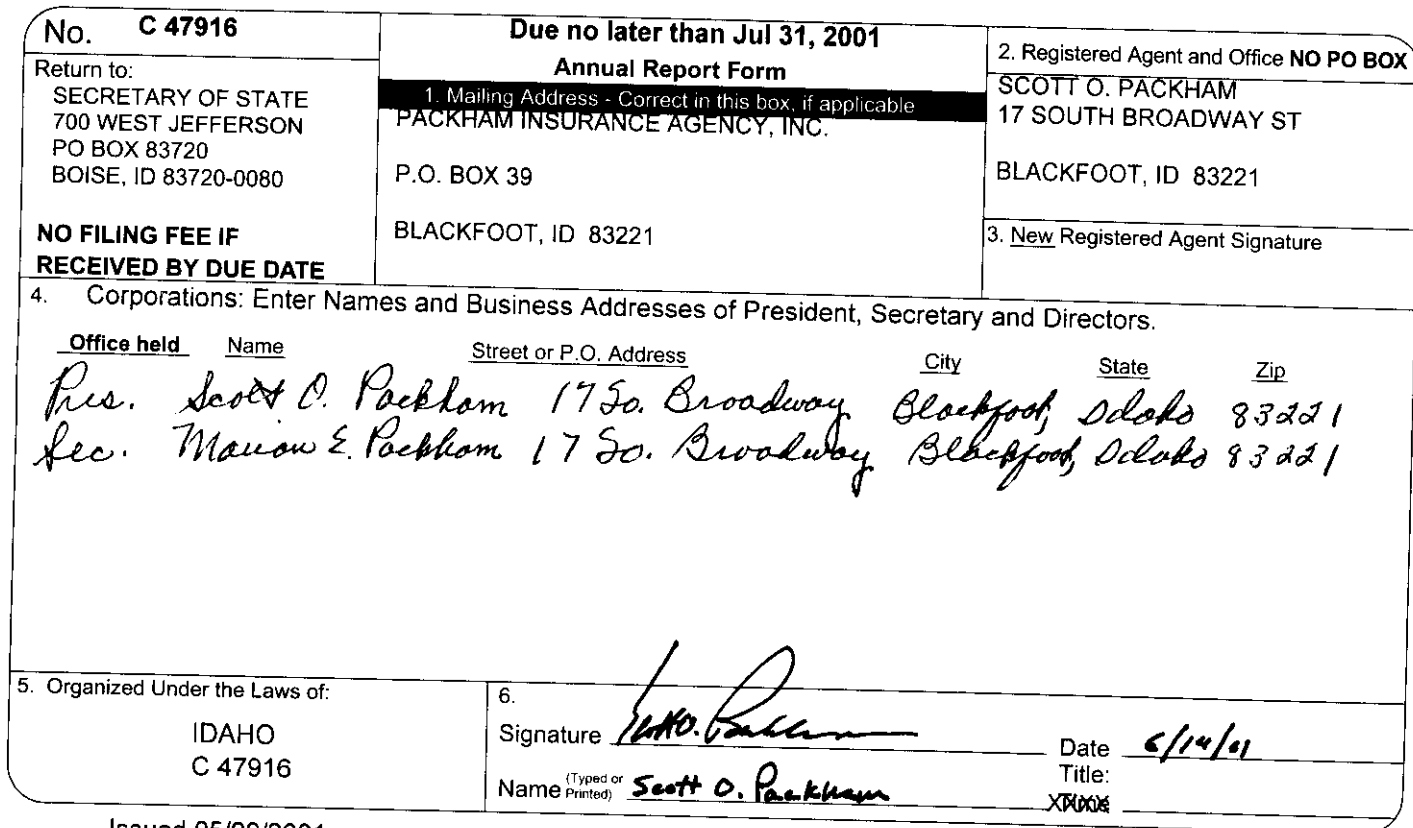 No. C 47916
Return to:
SECRETARY OF STATE
700 WEST JEFFERSON
PO BOX 83720
BOISE, ID 83720-0080
NO FILING FEE IF
RECEIVED BY DUE DATE
Due no later than Jul 31, 2001
Annual Report Form
1. Mailing Address - Correct in this box, if applicable
PACKHAM INSURANCE AGENCY, INC.
P.O. BOX 39
BLACKFOOT, ID 83221
2. Registered Agent and Office NO PO BOX
SCOTT O. PACKHAM
17 SOUTH BROADWAY ST
BLACKFOOT, ID 83221
3. New Registered Agent Signature
4. Corporations: Enter Names and Business Addresses of President, Secretary and Directors.
Office held Name Street or P.O. Address City State Zip
Pres. Scott O. Packham 17 So. Broadway Blackfoot, Idaho 83221
Sec. Marion E. Packham 17 So. Broadway Blackfoot, Idaho 83221
5. Organized Under the Laws of:
IDAHO
C 47916
6.
Signature Scott O. Packham Date 6/14/01
Name (Typed or Printed) Scott O. Packham Title: